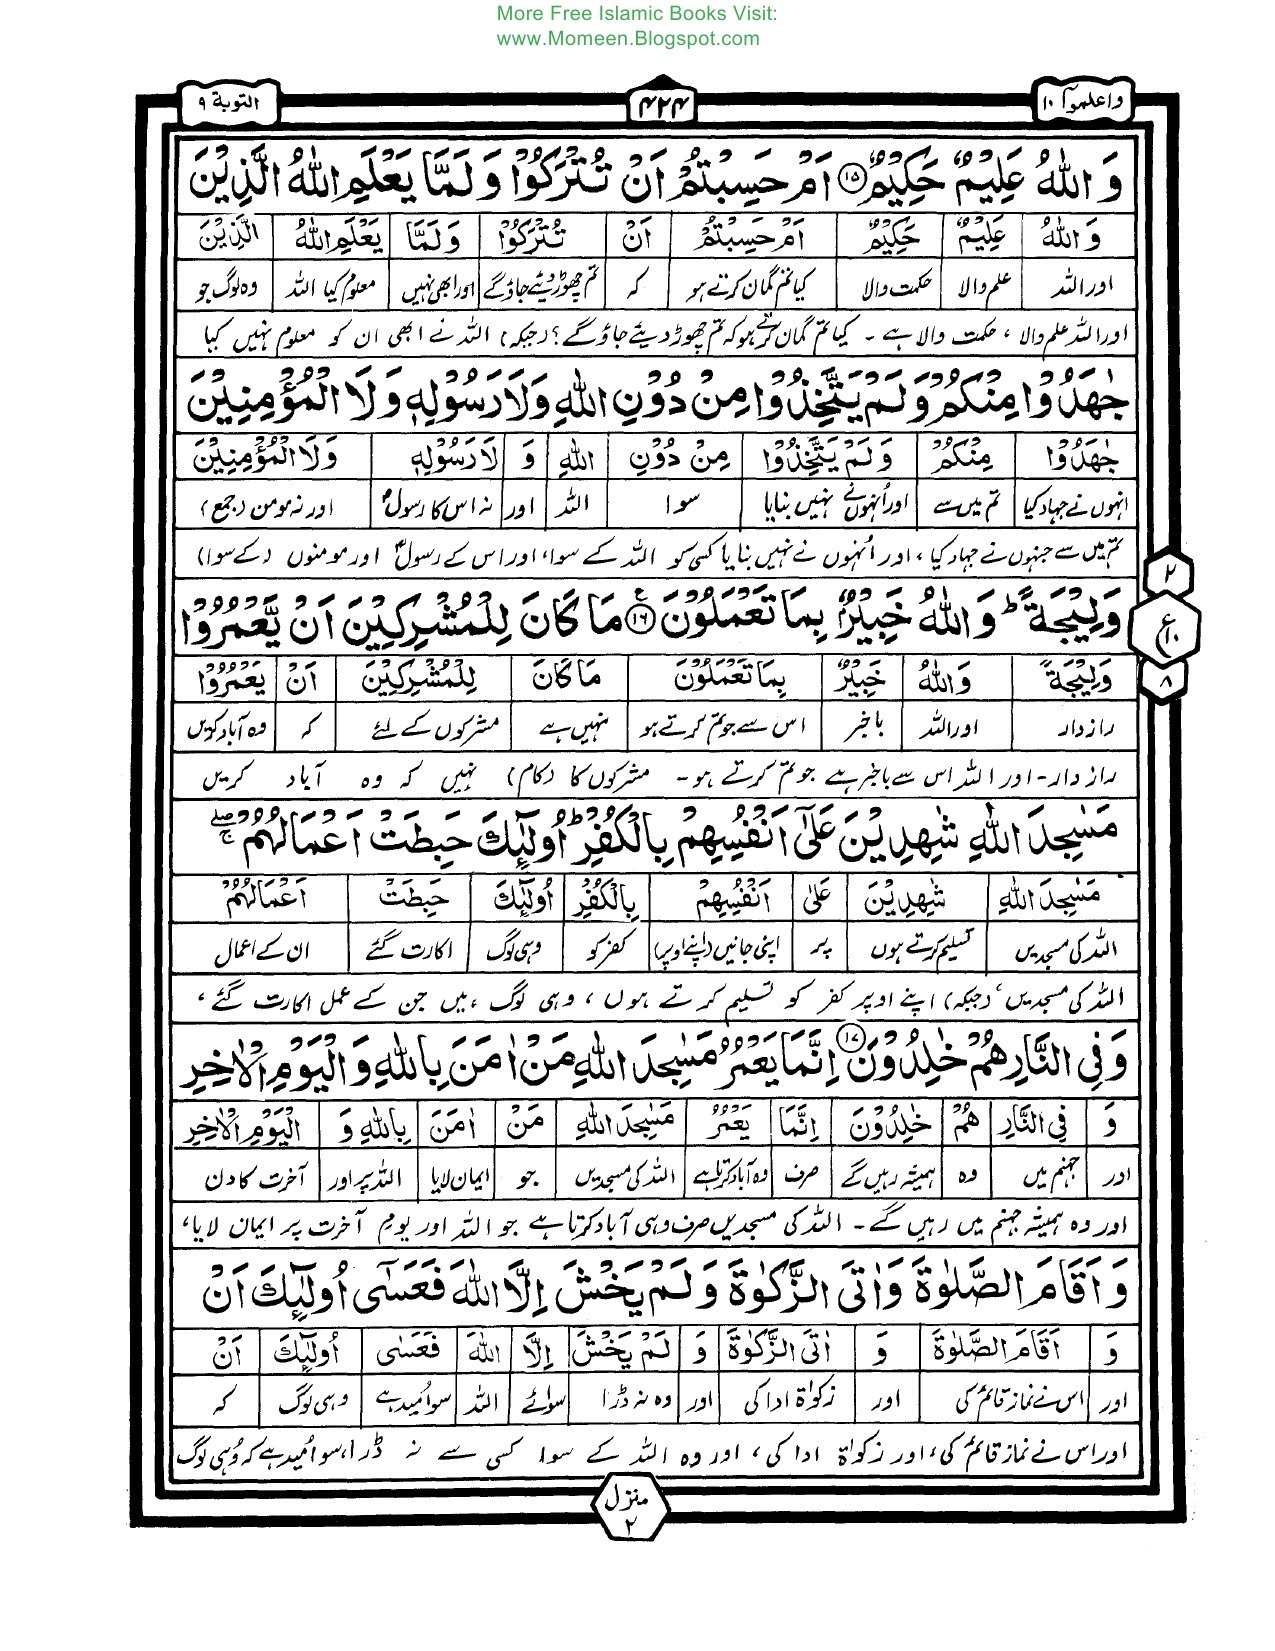 More Free Islamic Books Visit:
www.Momeen.Blogspot.com
واعلموا ۱۰
۴۲۴
التوبة ۹
وَاللّٰهُ عَلِيْمٌ حَكِيْمٌ ۝۱۵ اَمْ حَسِبْتُمْ اَنْ تُتْرَكُوْا وَلَمَّا يَعْلَمِ اللّٰهُ الَّذِيْنَ
وَاللّٰهُ عَلِيْمٌ حَكِيْمٌ اَمْ حَسِبْتُمْ اَنْ تُتْرَكُوْا وَلَمَّا يَعْلَمِ اللّٰهُ الَّذِيْنَ
اور اللہ علم والا حکمت والا کیا تم گمان کرتے ہو کہ تم چھوڑ دیئے جاؤ گے اور ابھی نہیں معلوم کیا اللہ وہ لوگ جو
اور اللہ علم والا، حکمت والا ہے۔ کیا تم گمان کرتے ہو کہ تم چھوڑ دیئے جاؤ گے؟ (جبکہ) اللہ نے ابھی ان کو معلوم نہیں کیا
جٰهَدُوْا مِنْكُمْ وَلَمْ يَتَّخِذُوْا مِنْ دُوْنِ اللّٰهِ وَلَا رَسُوْلِهٖ وَلَا الْمُؤْمِنِيْنَ
جٰهَدُوْا مِنْكُمْ وَلَمْ يَتَّخِذُوْا مِنْ دُوْنِ اللّٰهِ وَ لَا رَسُوْلِهٖ وَلَا الْمُؤْمِنِيْنَ
انہوں نے جہاد کیا تم میں سے اور اُنہوں نے نہیں بنایا سوا اللہ اور نہ اس کا رسولؐ اور نہ مومن (جمع)
تم میں سے جنہوں نے جہاد کیا، اور اُنہوں نے نہیں بنایا کسی کو اللہ کے سوا، اور اس کے رسولؐ اور مومنوں (کے سوا)
وَلِيْجَةً ؕ وَاللّٰهُ خَبِيْرٌۢ بِمَا تَعْمَلُوْنَ ۝۱۶ ع مَا كَانَ لِلْمُشْرِكِيْنَ اَنْ يَّعْمُرُوْا
۲
ع
۱۰
۸
وَلِيْجَةً وَاللّٰهُ خَبِيْرٌ بِمَا تَعْمَلُوْنَ مَا كَانَ لِلْمُشْرِكِيْنَ اَنْ يَعْمُرُوْا
رازدار اور اللہ باخبر اس سے جو تم کرتے ہو نہیں ہے مشرکوں کے لئے کہ وہ آباد کریں
راز دار۔ اور اللہ اس سے باخبر ہے جو تم کرتے ہو۔ مشرکوں کا (کام) نہیں کہ وہ آباد کریں
مَسٰجِدَ اللّٰهِ شٰهِدِيْنَ عَلٰۤى اَنْفُسِهِمْ بِالْكُفْرِ ؕ اُولٰٓئِكَ حَبِطَتْ اَعْمَالُهُمْ ۚۖ
مَسٰجِدَ اللّٰهِ شٰهِدِيْنَ عَلٰى اَنْفُسِهِمْ بِالْكُفْرِ اُولٰٓئِكَ حَبِطَتْ اَعْمَالُهُمْ
اللہ کی مسجدیں تسلیم کرتے ہوں پر اپنی جانیں (اپنے اوپر) کفر کو وہی لوگ اکارت گئے ان کے اعمال
اللہ کی مسجدیں، (جبکہ) اپنے اوپر کفر کو تسلیم کرتے ہوں، وہی لوگ ہیں جن کے عمل اکارت گئے،
وَفِي النَّارِ هُمْ خٰلِدُوْنَ ۝۱۷ اِنَّمَا يَعْمُرُ مَسٰجِدَ اللّٰهِ مَنْ اٰمَنَ بِاللّٰهِ وَالْيَوْمِ الْاٰخِرِ
وَ فِي النَّارِ هُمْ خٰلِدُوْنَ اِنَّمَا يَعْمُرُ مَسٰجِدَ اللّٰهِ مَنْ اٰمَنَ بِاللّٰهِ وَ الْيَوْمِ الْاٰخِرِ
اور جہنم میں وہ ہمیشہ رہیں گے صرف وہ آباد کرتا ہے اللہ کی مسجدیں جو ایمان لایا اللہ پر اور آخرت کا دن
اور وہ ہمیشہ جہنم میں رہیں گے۔ اللہ کی مسجدیں صرف وہی آباد کرتا ہے جو اللہ اور یومِ آخرت پر ایمان لایا،
وَاَقَامَ الصَّلٰوةَ وَاٰتَى الزَّكٰوةَ وَلَمْ يَخْشَ اِلَّا اللّٰهَ فَعَسٰۤى اُولٰٓئِكَ اَنْ
وَ اَقَامَ الصَّلٰوةَ وَ اٰتَى الزَّكٰوةَ وَ لَمْ يَخْشَ اِلَّا اللّٰهَ فَعَسٰى اُولٰٓئِكَ اَنْ
اور اس نے نماز قائم کی اور زکوٰۃ ادا کی اور وہ نہ ڈرا سوائے اللہ سو اُمید ہے وہی لوگ کہ
اور اس نے نماز قائم کی، اور زکوٰۃ ادا کی، اور وہ اللہ کے سوا کسی سے نہ ڈرا، سو اُمید ہے کہ وُہی لوگ
منزل
۲